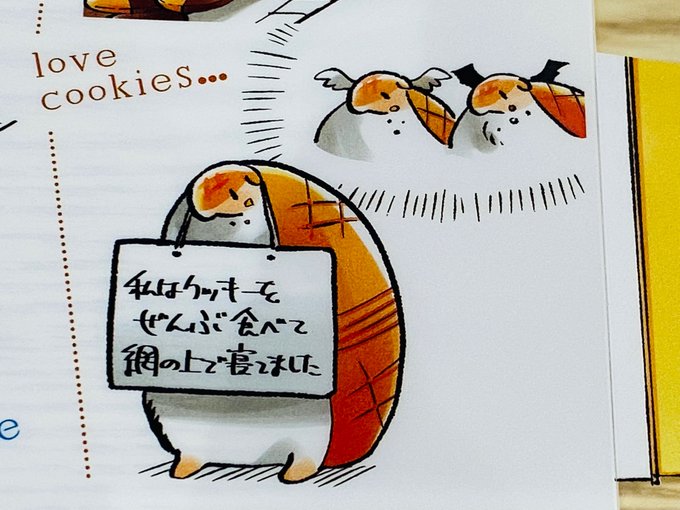 love
cookies...
私はクッキーを
ぜんぶ食べて
網の上で寝てました
e